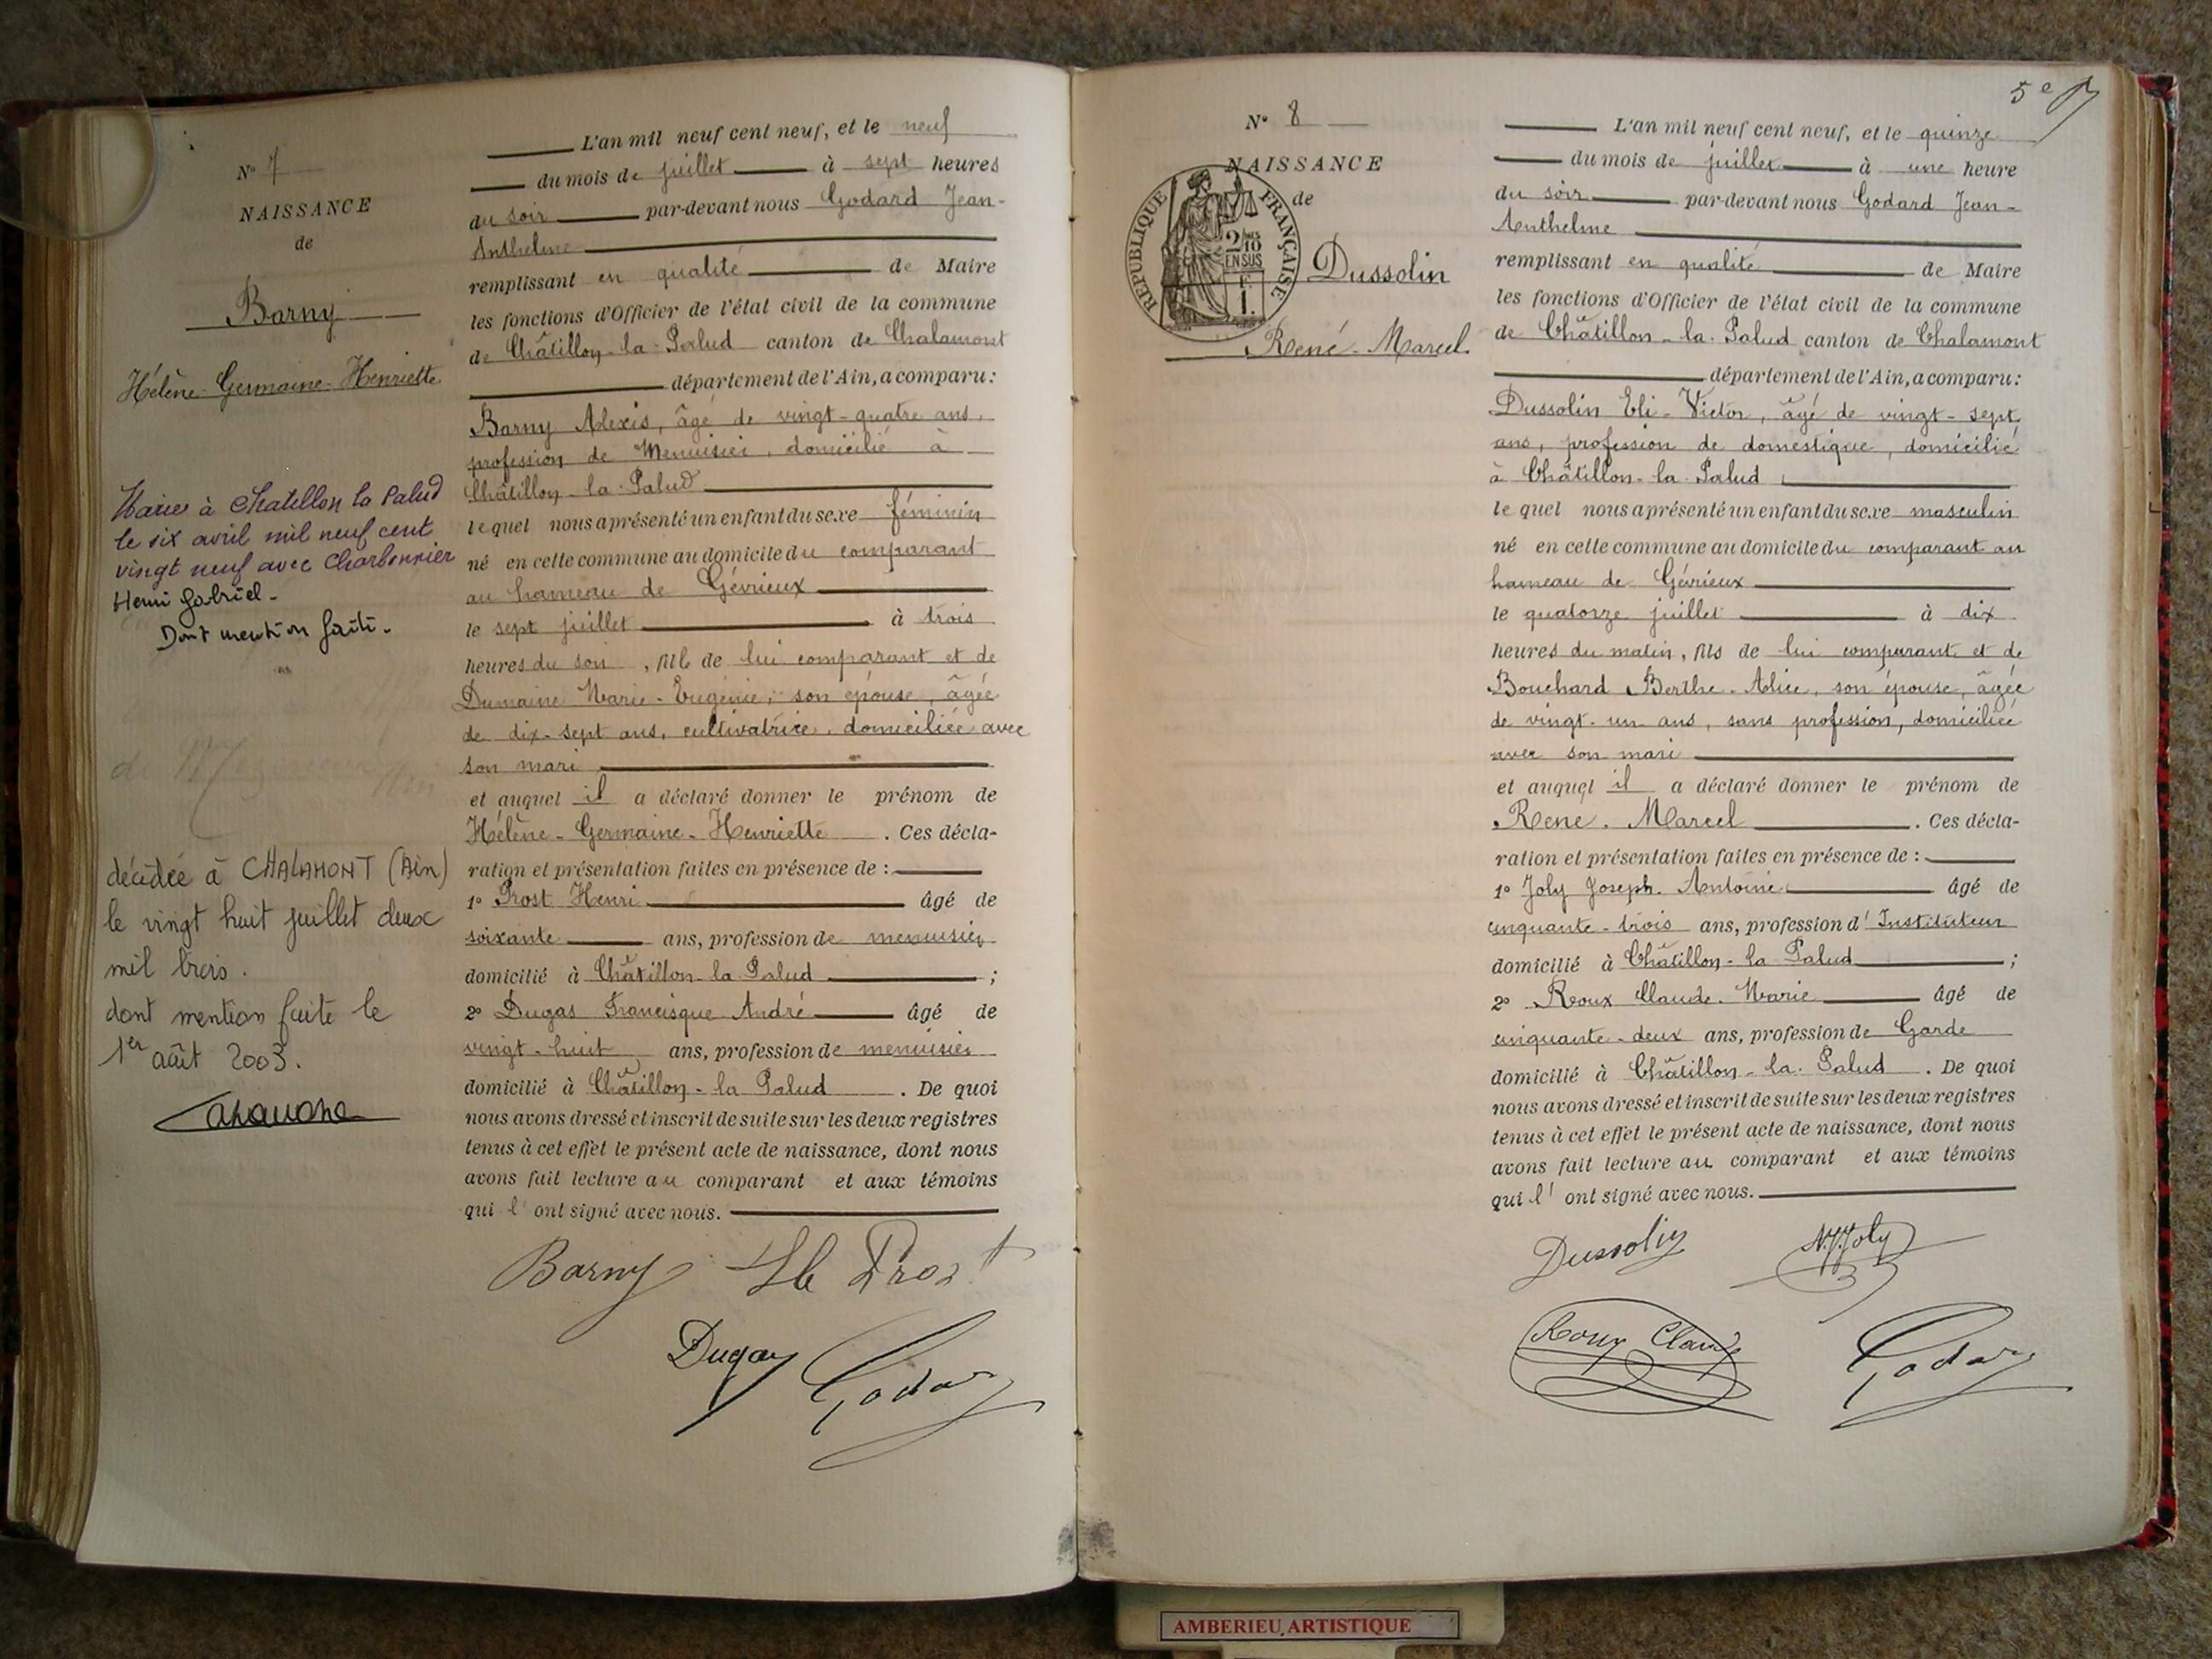 N° 7
NAISSANCE
de
Barny
Hélène-Germaine-Henriette
Mariée à Chatillon la Palud
le six avril mil neuf cent
vingt neuf avec Charbonnier
Henri Gabriel.
Dont mention faite.
décédée à CHALAMONT (Ain)
le vingt huit juillet deux
mil trois.
dont mention faite le
1er août 2003.
L'an mil neuf cent neuf, et le neuf
du mois de juillet à sept heures
du soir par-devant nous Godard Jean-
Anthelme
remplissant en qualité de Maire
les fonctions d'Officier de l'état civil de la commune
de Châtillon-la-Palud canton de Chalamont
département de l'Ain, a comparu:
Barny Alexis, âgé de vingt-quatre ans,
profession de Menuisier, domicilié à
Châtillon-la-Palud
lequel nous a présenté un enfant du sexe féminin
né en cette commune au domicile du comparant
au hameau de Gévrieux
le sept juillet à trois
heures du soir, fille de lui comparant et de
Dumaine Marie-Eugénie, son épouse, âgée
de dix-sept ans, cultivatrice, domiciliée avec
son mari
et auquel il a déclaré donner le prénom de
Hélène-Germaine-Henriette. Ces décla-
ration et présentation faites en présence de:
1° Prost Henri âgé de
soixante ans, profession de menuisier
domicilié à Châtillon-la-Palud;
2° Dugas Francisque André âgé de
vingt-huit ans, profession de menuisier
domicilié à Châtillon-la Palud. De quoi
nous avons dressé et inscrit de suite sur les deux registres
tenus à cet effet le présent acte de naissance, dont nous
avons fait lecture au comparant et aux témoins
qui l'ont signé avec nous.
Barny Prost
Dugas Godard
5e
N° 8
NAISSANCE
de
RÉPUBLIQUE FRANÇAISE
2/10
EN SUS
1.
Dussolin
René-Marcel
L'an mil neuf cent neuf, et le quinze
du mois de juillet à une heure
du soir par-devant nous Godard Jean-
Anthelme
remplissant en qualité de Maire
les fonctions d'Officier de l'état civil de la commune
de Châtillon-la-Palud canton de Chalamont
département de l'Ain, a comparu:
Dussolin Eli-Victor, âgé de vingt-sept
ans, profession de domestique, domicilié
à Châtillon-la-Palud
lequel nous a présenté un enfant du sexe masculin
né en cette commune au domicile du comparant au
hameau de Gévrieux
le quatorze juillet à dix
heures du matin, fils de lui comparant et de
Bouchard Berthe-Alice, son épouse, âgée
de vingt-un ans, sans profession, domiciliée
avec son mari
et auquel il a déclaré donner le prénom de
René-Marcel. Ces décla-
ration et présentation faites en présence de:
1° Joly Joseph-Antoine âgé de
cinquante-trois ans, profession d'Instituteur
domicilié à Châtillon-la Palud;
2° Roux Claude-Marie âgé de
cinquante-deux ans, profession de Garde
domicilié à Châtillon-la-Palud. De quoi
nous avons dressé et inscrit de suite sur les deux registres
tenus à cet effet le présent acte de naissance, dont nous
avons fait lecture au comparant et aux témoins
qui l'ont signé avec nous.
Dussolin Joly
Roux Claude Godard
AMBERIEU ARTISTIQUE